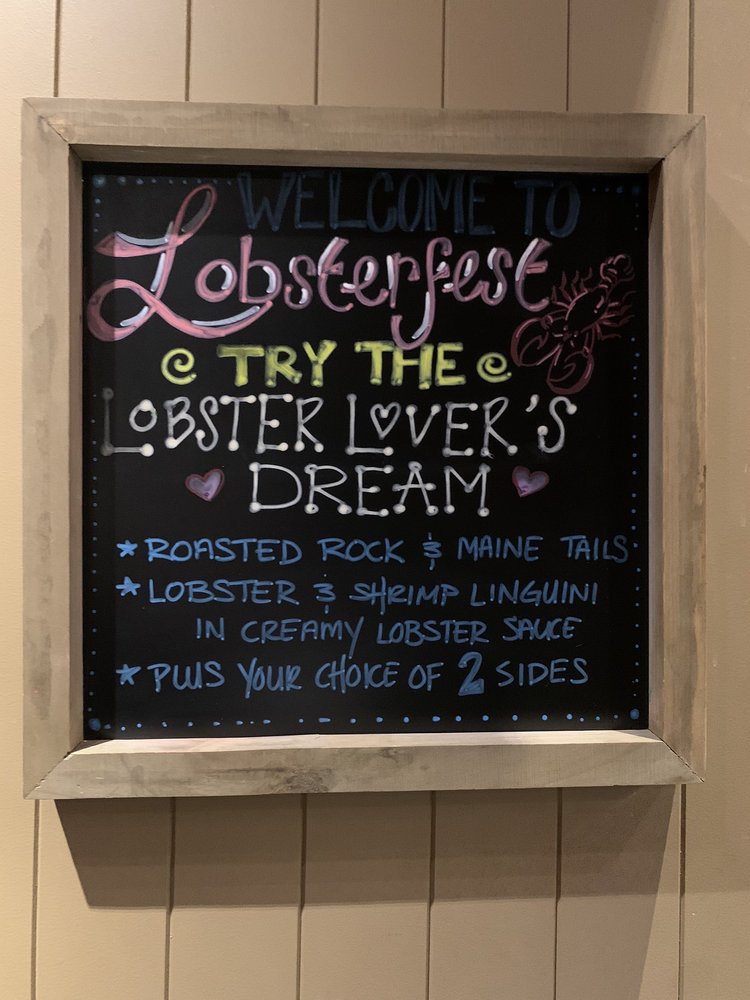 WELCOME TO
Lobsterfest
TRY THE
LOBSTER LOVER'S
DREAM
* ROASTED ROCK & MAINE TAILS
* LOBSTER & SHRIMP LINGUINI
IN CREAMY LOBSTER SAUCE
* PLUS YOUR CHOICE OF 2 SIDES